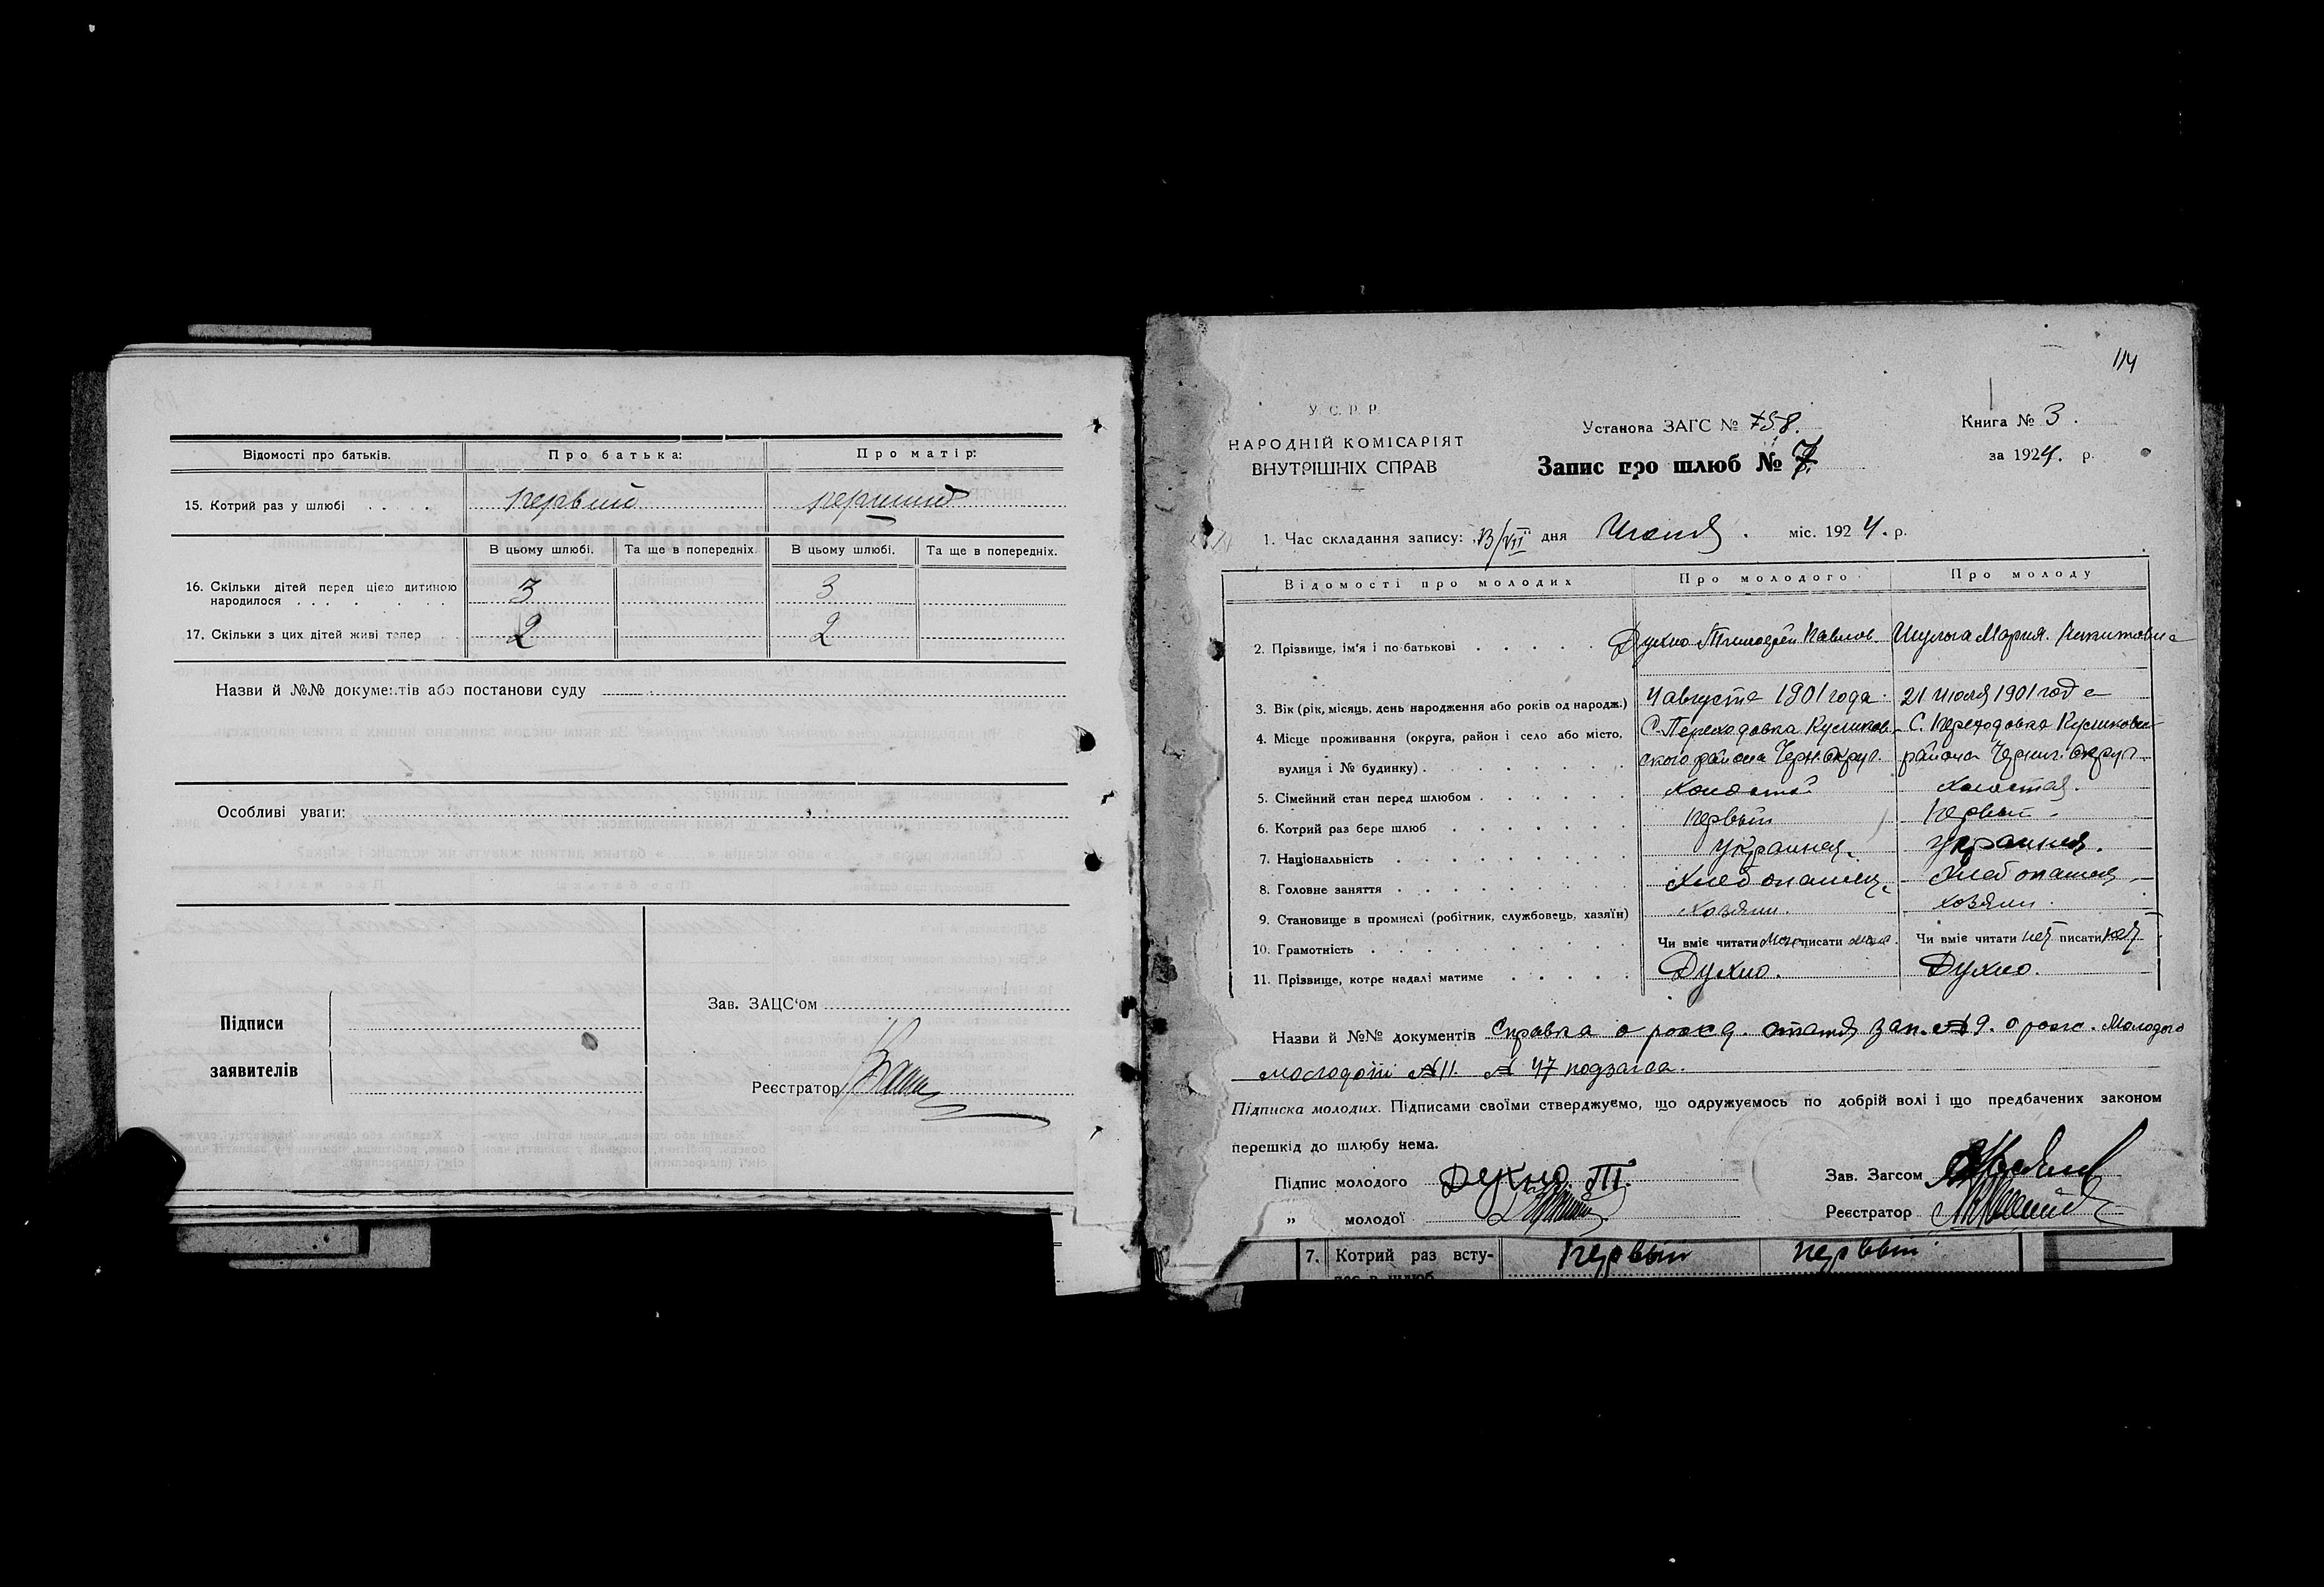 Відомості про батьків. Про батька: Про матір:
15. Котрий раз у шлюбі . . . . первый первый
В цьому шлюбі. Та ще в попередніх. В цьому шлюбі. Та ще в попередніх.
16. Скільки дітей перед цією дитиною
народилося . . . . . . . 3 3
17. Скільки з цих дітей живі тепер 2 2
Назви й №№ документів або постанови суду
Особливі уваги:
Підписи
заявителів
Зав. ЗАЦС'ом
Реєстратор
114
У. С. Р. Р.
НАРОДНІЙ КОМІСАРІЯТ
ВНУТРІШНІХ СПРАВ
Установа ЗАГС № 758.
Запис про шлюб № 7
Книга № 3.
за 1924. р.
1. Час складання запису: 13/VII дня Июля. міс. 1924. р.
Відомості про молодих Про молодого Про молоду
2. Прізвище, ім'я і по-батькові . . . . . Духно Тимофей Павлов. Шульга Мария. Никитовна
3. Вік (рік, місяць, день народження або років од народж.) 4 августа 1901 года. 21 Июля 1901 года
4. Місце проживання (округа, район і село або місто, С. Переходовка Куликов- С. Переходовка Куликовск
вулиця і № будинку) . . . . . . . . ского района Черн. Округ. района Черниг. Округ.
5. Сімейний стан перед шлюбом . . . . . . Холостой Холостая.
6. Котрий раз бере шлюб . . . . . . . Первый Первый.
7. Національність . . . . . . . . . Украиная. Украиная.
8. Головне заняття . . . . . . . . . Хлебопашец. Хлебопашец
9. Становище в промислі (робітник, службовець, хазяїн) Хозяин. хозяин.
10. Грамотність . . . . . . . . . . Чи вміє читати може писати може. Чи вміє читати нет писати нет
11. Прізвище, котре надалі матиме . . . . . Духно. Духно.
Назви й №№ документів Справка о рожд. зап. № 9. о рожс. Молодого
молодой №11. № 47 подзагса.
Підписка молодих. Підписами своїми стверджуємо, що одружуємось по добрій волі і що предбачених законом
перешкід до шлюбу нема.
Підпис молодого Духно. Т. Зав. Загсом
„ молодої Реєстратор
7. Котрий раз всту- первый первый